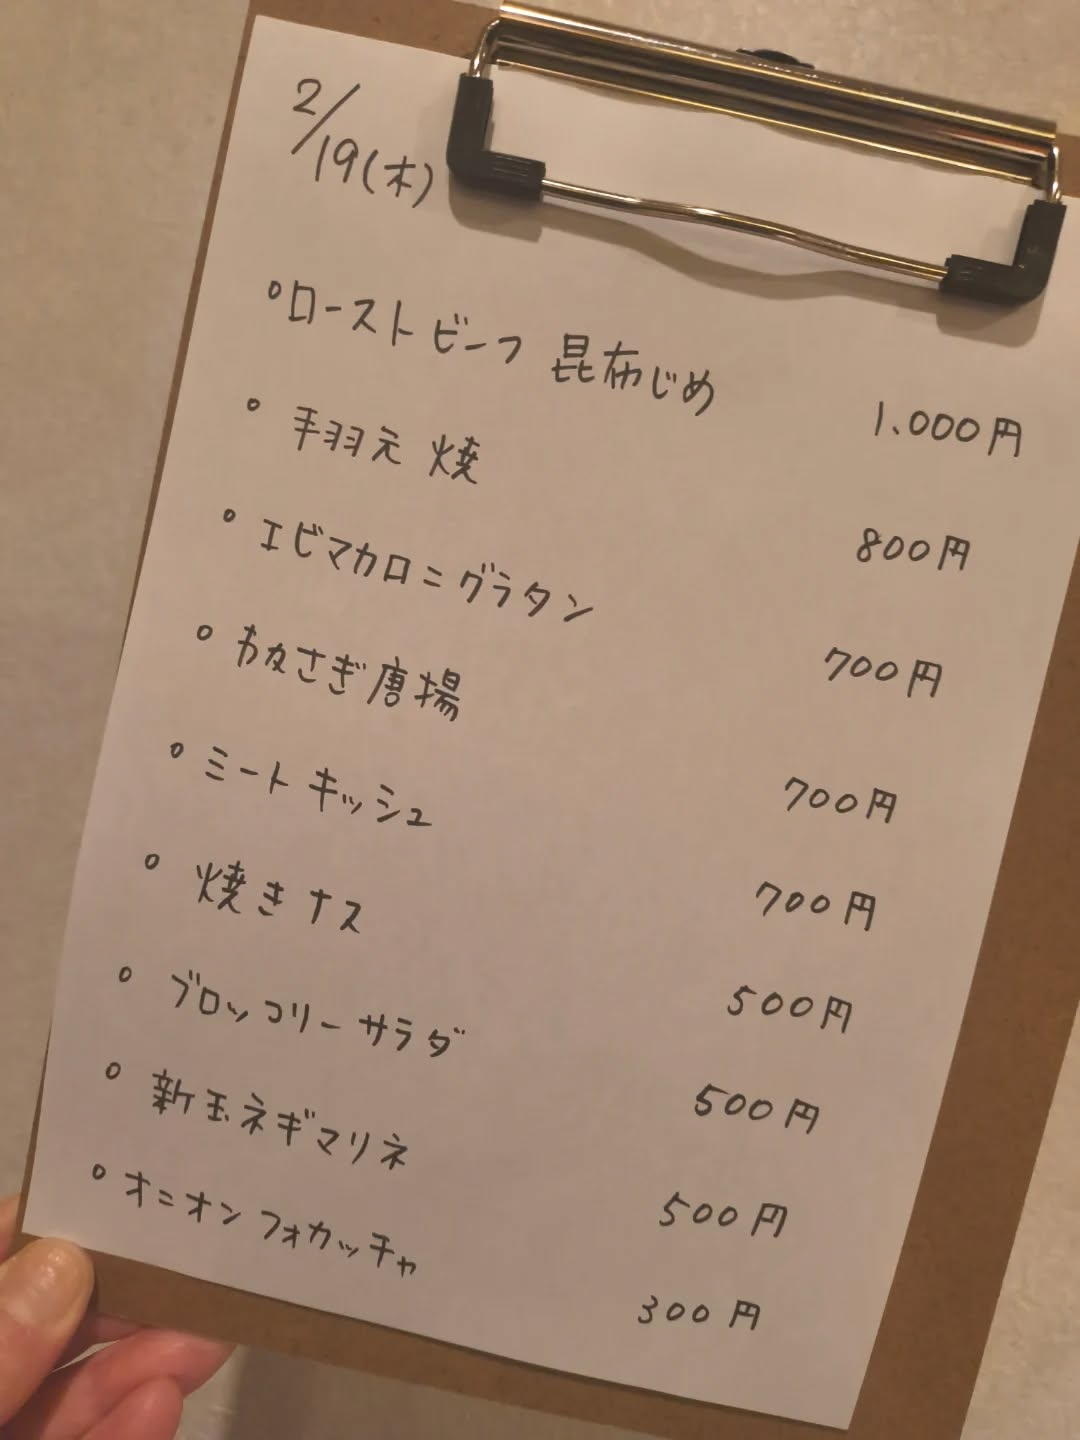 2/19(木)
・ローストビーフ 昆布じめ 1,000円
・手羽元 焼 800円
・エビマカロニグラタン 700円
・わかさぎ唐揚 700円
・ミートキッシュ 700円
・焼きナス 500円
・ブロッコリーサラダ 500円
・新玉ネギマリネ 500円
・オニオンフォカッチャ 300円